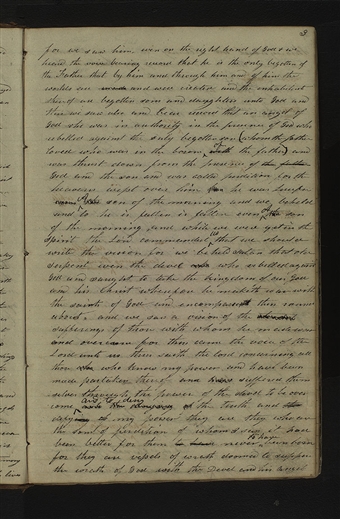 3
for we saw him even on the right hand of God & we
heard the voice bearing record that he is the only begotten of
the Father that by him and through him and of him the
worlds are made and were created and the inhabitants
thereof are begotten sons and daughters unto God and
this we saw also and bear record that an angel of
God who was in authority in the presence of God who
rebelled against the only begotten son (whom the father
loved who was in the bosom of the father) and
was thrust down from the presence of
God and the son and was called perdition for the
heavens wept over him he was Lucifer
son of the morning and we beheld
and lo he is fallen is fallen even son
of the morning and while we were yet in the
spirit the Lord commanded that we should
write the vision for we beheld satan that old
serpent even the devil who rebelled against
God and sought to take the kingdom of our God
and his Christ wherefore he maketh war with
the saints of God and encompaseth them round
about and we saw a vision of the
sufferings of those with whom he made war
and overcame for thus came the voice of the
Lord unto us thus saith the Lord concerning all
those who know my power and have been
made partakers thereof and suffered them
selves through the power of the devil to be over
come and to deny the truth and
defy my power they are they who are
the sons of perdition of whom I say it had
been better for them never to have been born
for they are vessels of wrath doomed to suffer
the wrath of God with the Devel and his angels